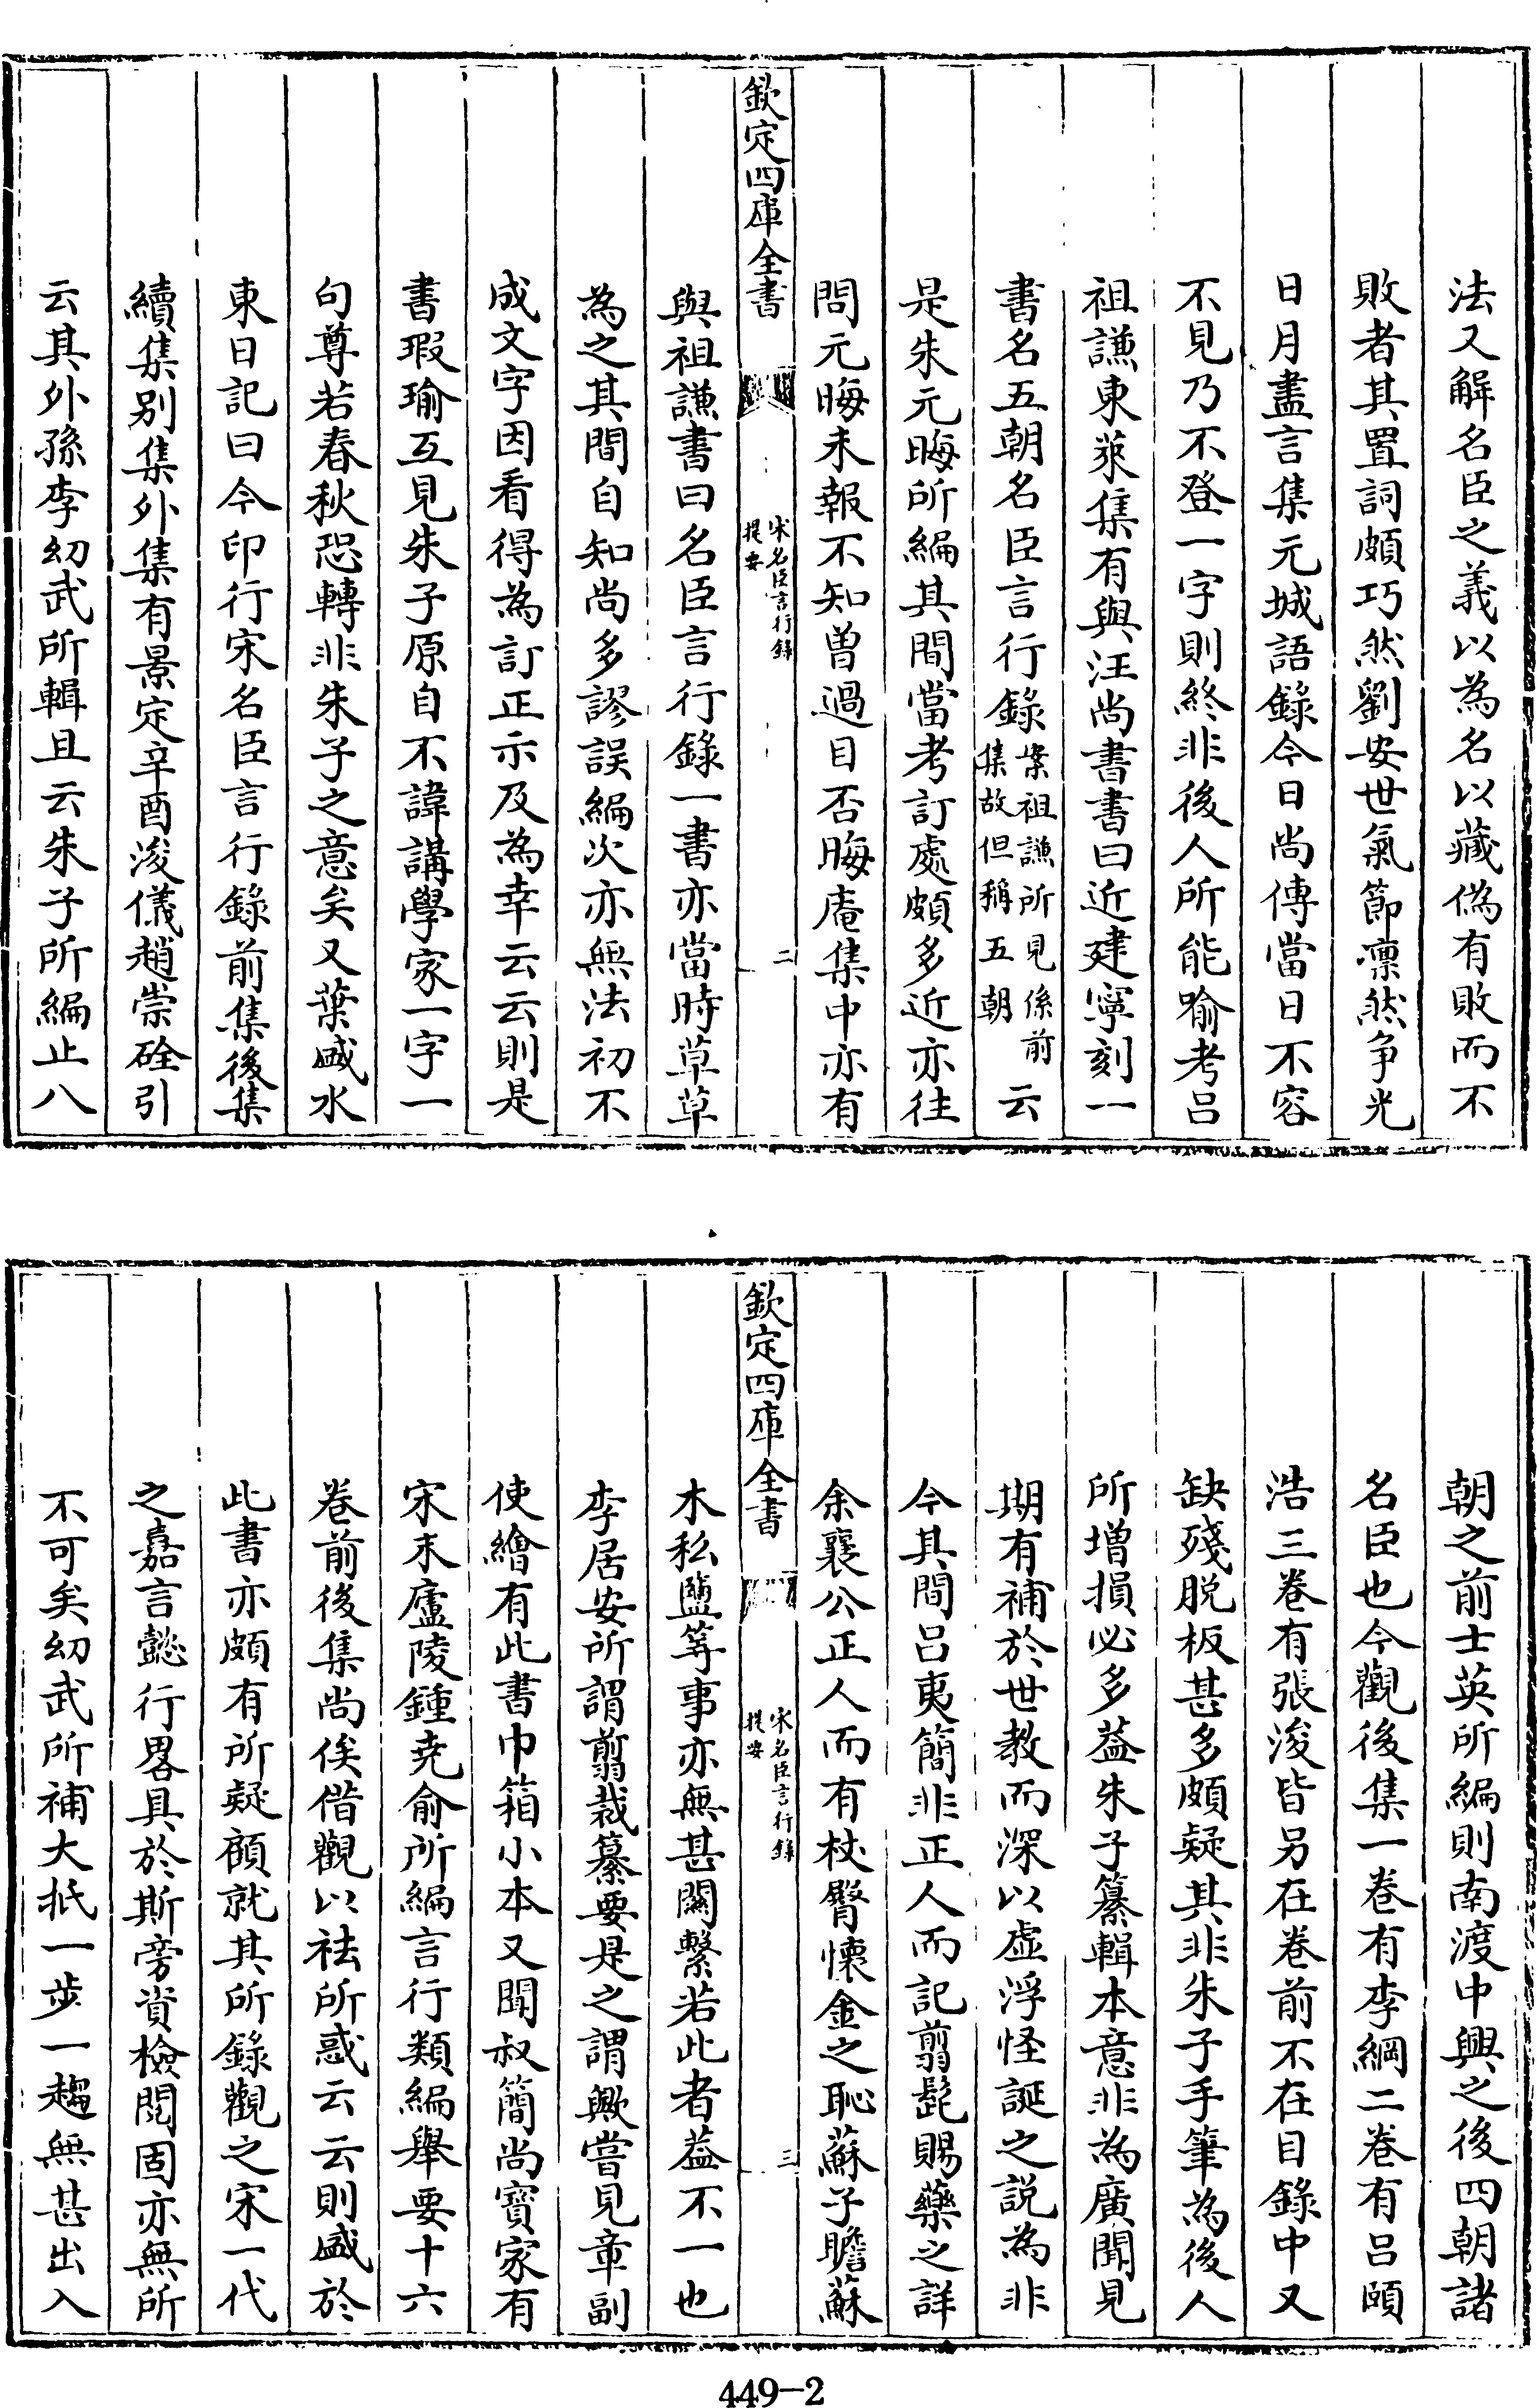 法又解名臣之義以為名以藏偽有敗而不
敗者其置詞頗巧然劉安世氣節凛然争光
日月盡言集元城語錄今日尚傳當日不容
不見乃不登一字則終非後人所能喻考吕
祖謙東萊集有與汪尚書書曰近建寧刻一
書名五朝名臣言行錄案祖謙所見係前集故但稱五朝云
是朱元晦所編其間當考訂處頗多近亦往
問元晦未報不知曽過目否晦庵集中亦有
欽定四庫全書
宋名臣言行錄
提要
二
與祖謙書曰名臣言行錄一書亦當時草草
為之其間自知尚多謬誤編次亦無法初不
成文字因看得為訂正示及為幸云云則是
書瑕瑜互見朱子原自不諱講學家一字一
句尊若春秋恐轉非朱子之意矣又葉盛水
東日記曰今印行宋名臣言行錄前集後集
續集别集外集有景定辛酉浚儀趙崇硂引
云其外孫李幼武所輯且云朱子所編止八
朝之前士英所編則南渡中興之後四朝諸
名臣也今觀後集一卷有李綱二卷有吕頤
浩三卷有張浚皆另在卷前不在目錄中又
缺殘脱板甚多頗疑其非朱子手筆為後人
所增損必多葢朱子纂輯本意非為廣聞見
期有補於世教而深以虚浮怪誕之説為非
今其間吕夷簡非正人而記翦髭賜藥之詳
余襄公正人而有杖臀懐金之恥蘇子瞻蘇
欽定四庫全書
宋名臣言行錄
提要
三
木私鹽等事亦無甚闗繋若此者葢不一也
李居安所謂翦裁纂要是之謂歟嘗見章副
使繪有此書巾箱小本又聞叔簡尚寳家有
宋末廬陵鍾尭俞所編言行類編舉要十六
卷前後集尚俟借觀以祛所惑云云則盛於
此書亦頗有所疑顧就其所錄觀之宋一代
之嘉言懿行畧具於斯旁資檢閲固亦無所
不可矣幼武所補大抵一步一趨無甚出入
449-2